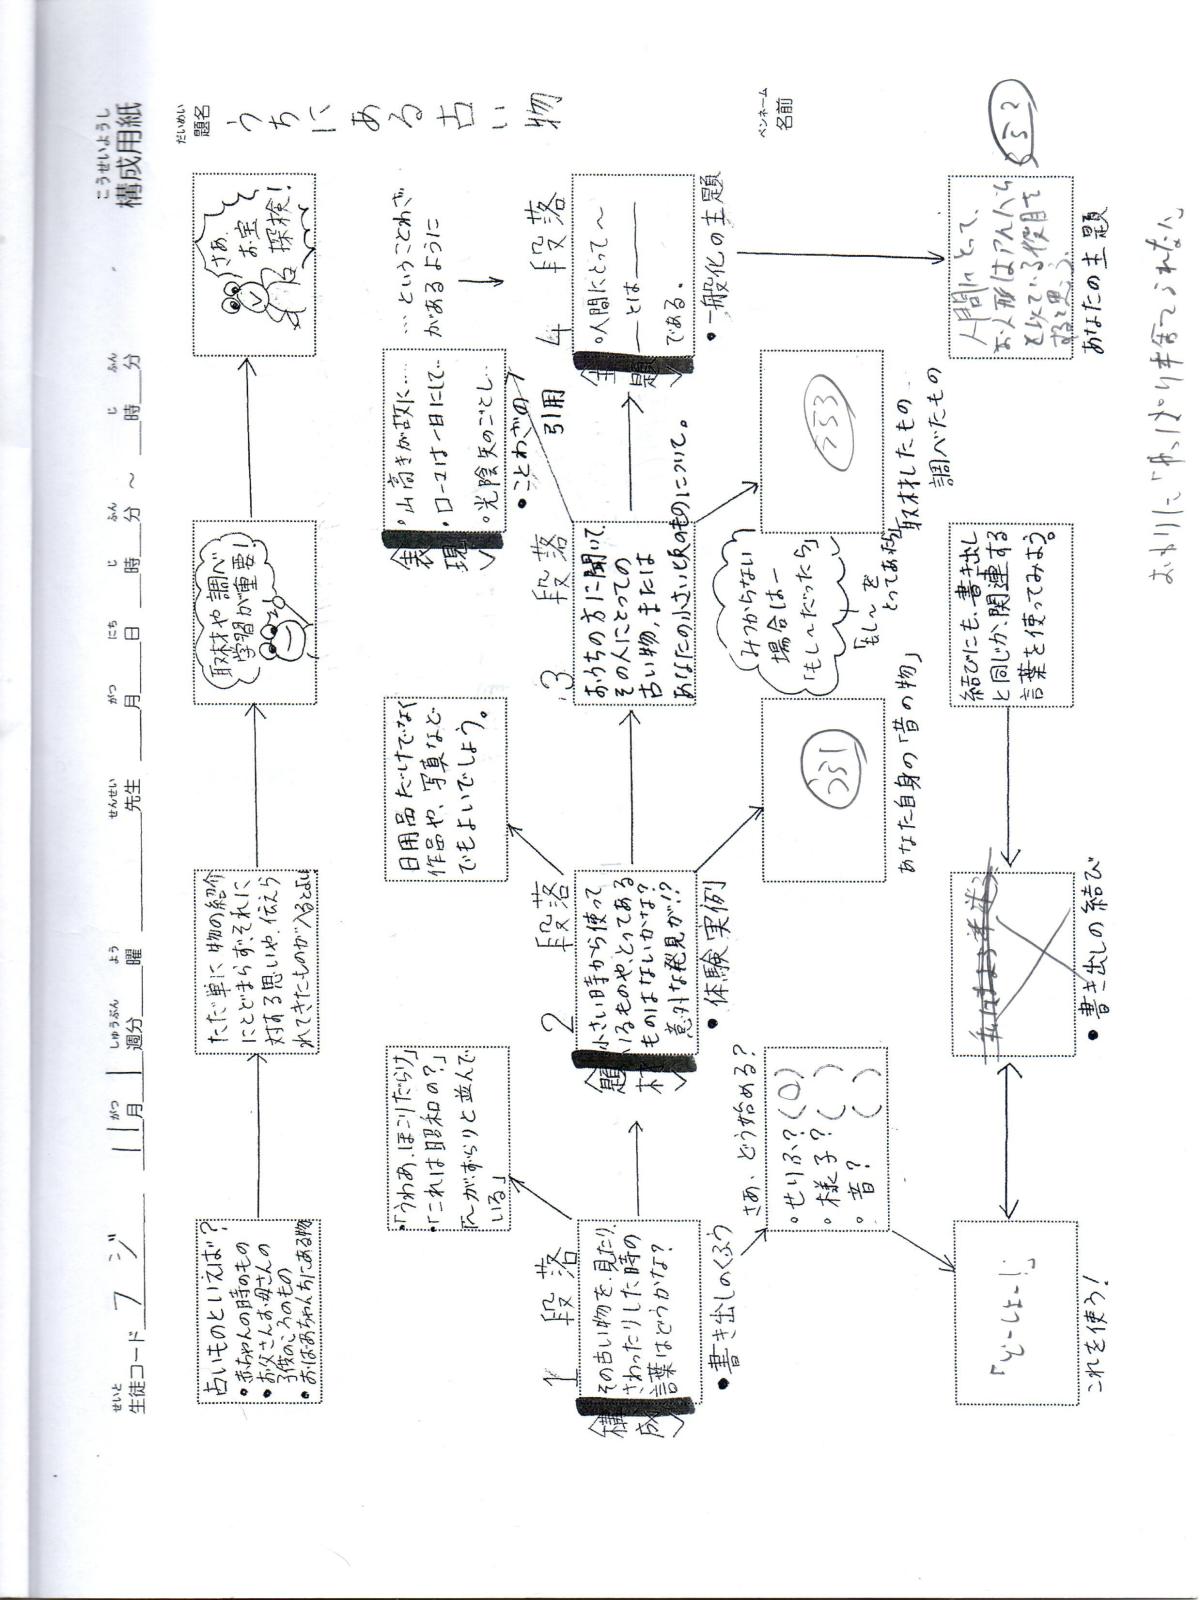 こうせいようし
構成用紙
せいと
生徒コード フジ
11 がつ 月 1 しゅうぶん 週分 よう 曜 せんせい 先生 がつ 月 にち 日 じ 時 ふん 分 ～ じ 時 ふん 分
だいめい
題名
うちにある古い物
ペンネーム
名前
古いものといえば？
・赤ちゃんの時のもの
・お父さんお母さんの
子供のころのもの
・おばあちゃんちにある物
ただ単に物の紹介
にとどまらず、それに
対する思いや、伝えら
れてきたものが入るとよい
取材や調べ
学習が重要！
さあ、
お宝
探検！
・「うわあ、ほこりだらけ」
・「これは昭和の？」
・「～がずらりと並んで
いる」
日用品だけでなく
作品や、写真など
でもよいでしょう。
〈表現〉
・山高きが故に……
・ローマは一日にして…
・光陰矢のごとし…
・ことわざの
引用
…ということわざ
があるように
1段落
〈構成〉
その古い物を、見たり、
さわったりした時の
言葉はどうかな？
・書き出しのくふう
2段落
〈題材〉
小さい時から使って
いるものや、とってある
ものはないかな？
意外な発見が！？
・体験実例
3段落
おうちの方に聞いて、
その人にとっての
古い物、または
あなたの小さい頃のものについて。
4段落
〈主題〉
・人間にとって～
――とは――――
である。
・一般化の主題
さあ、どう始める？
・せりふ？（○）
・様子？（ ）
・音？（ ）
うら1
あなた自身の「昔の物」
みつからない
場合は―
「もし～だったら」
「もし～を
とってあれば」
うら3
取材したもの
調べたもの
「どーしよー！」
これを使う！
・書き出しの結び
結びにも、書き出し
と同じか、関連する
言葉を使ってみよう。
人間にとって、
お人形は
と似ている役目を
すると思う。
あなたの主題
うら2
おわりに「やっぱり捨てられない」